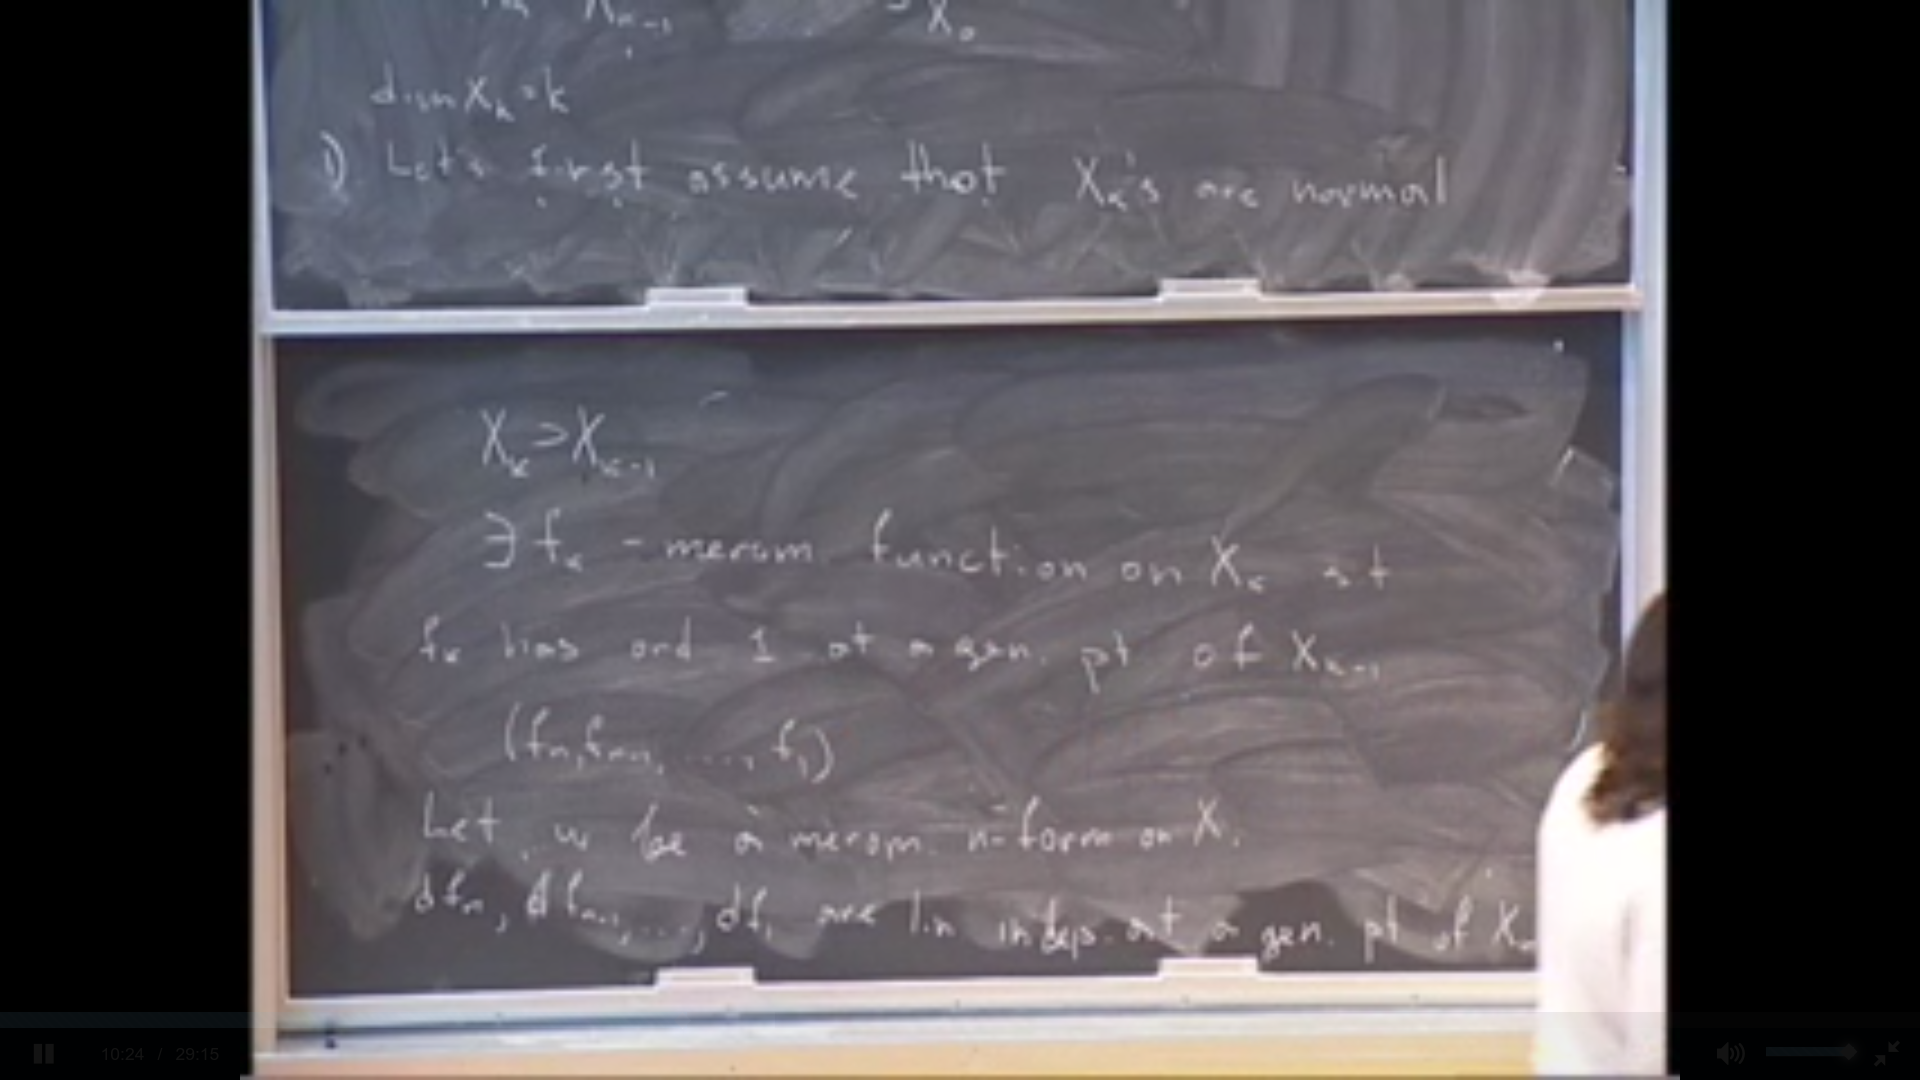 X_{k-1} X_0
dim X_k = k
1) Let's first assume that X_k's are normal
X_k ⊃ X_{k-1}
∃ f_k - merom. function on X_k st
f_k has ord 1 at a gen. pt of X_{k-1}
(f_n, f_{n-1}, ...., f_1)
Let w be a merom. n-form on X.
df_n, df_{n-1}, ..., df_1 are lin indep. at a gen. pt of X_n
10:24 / 29:15